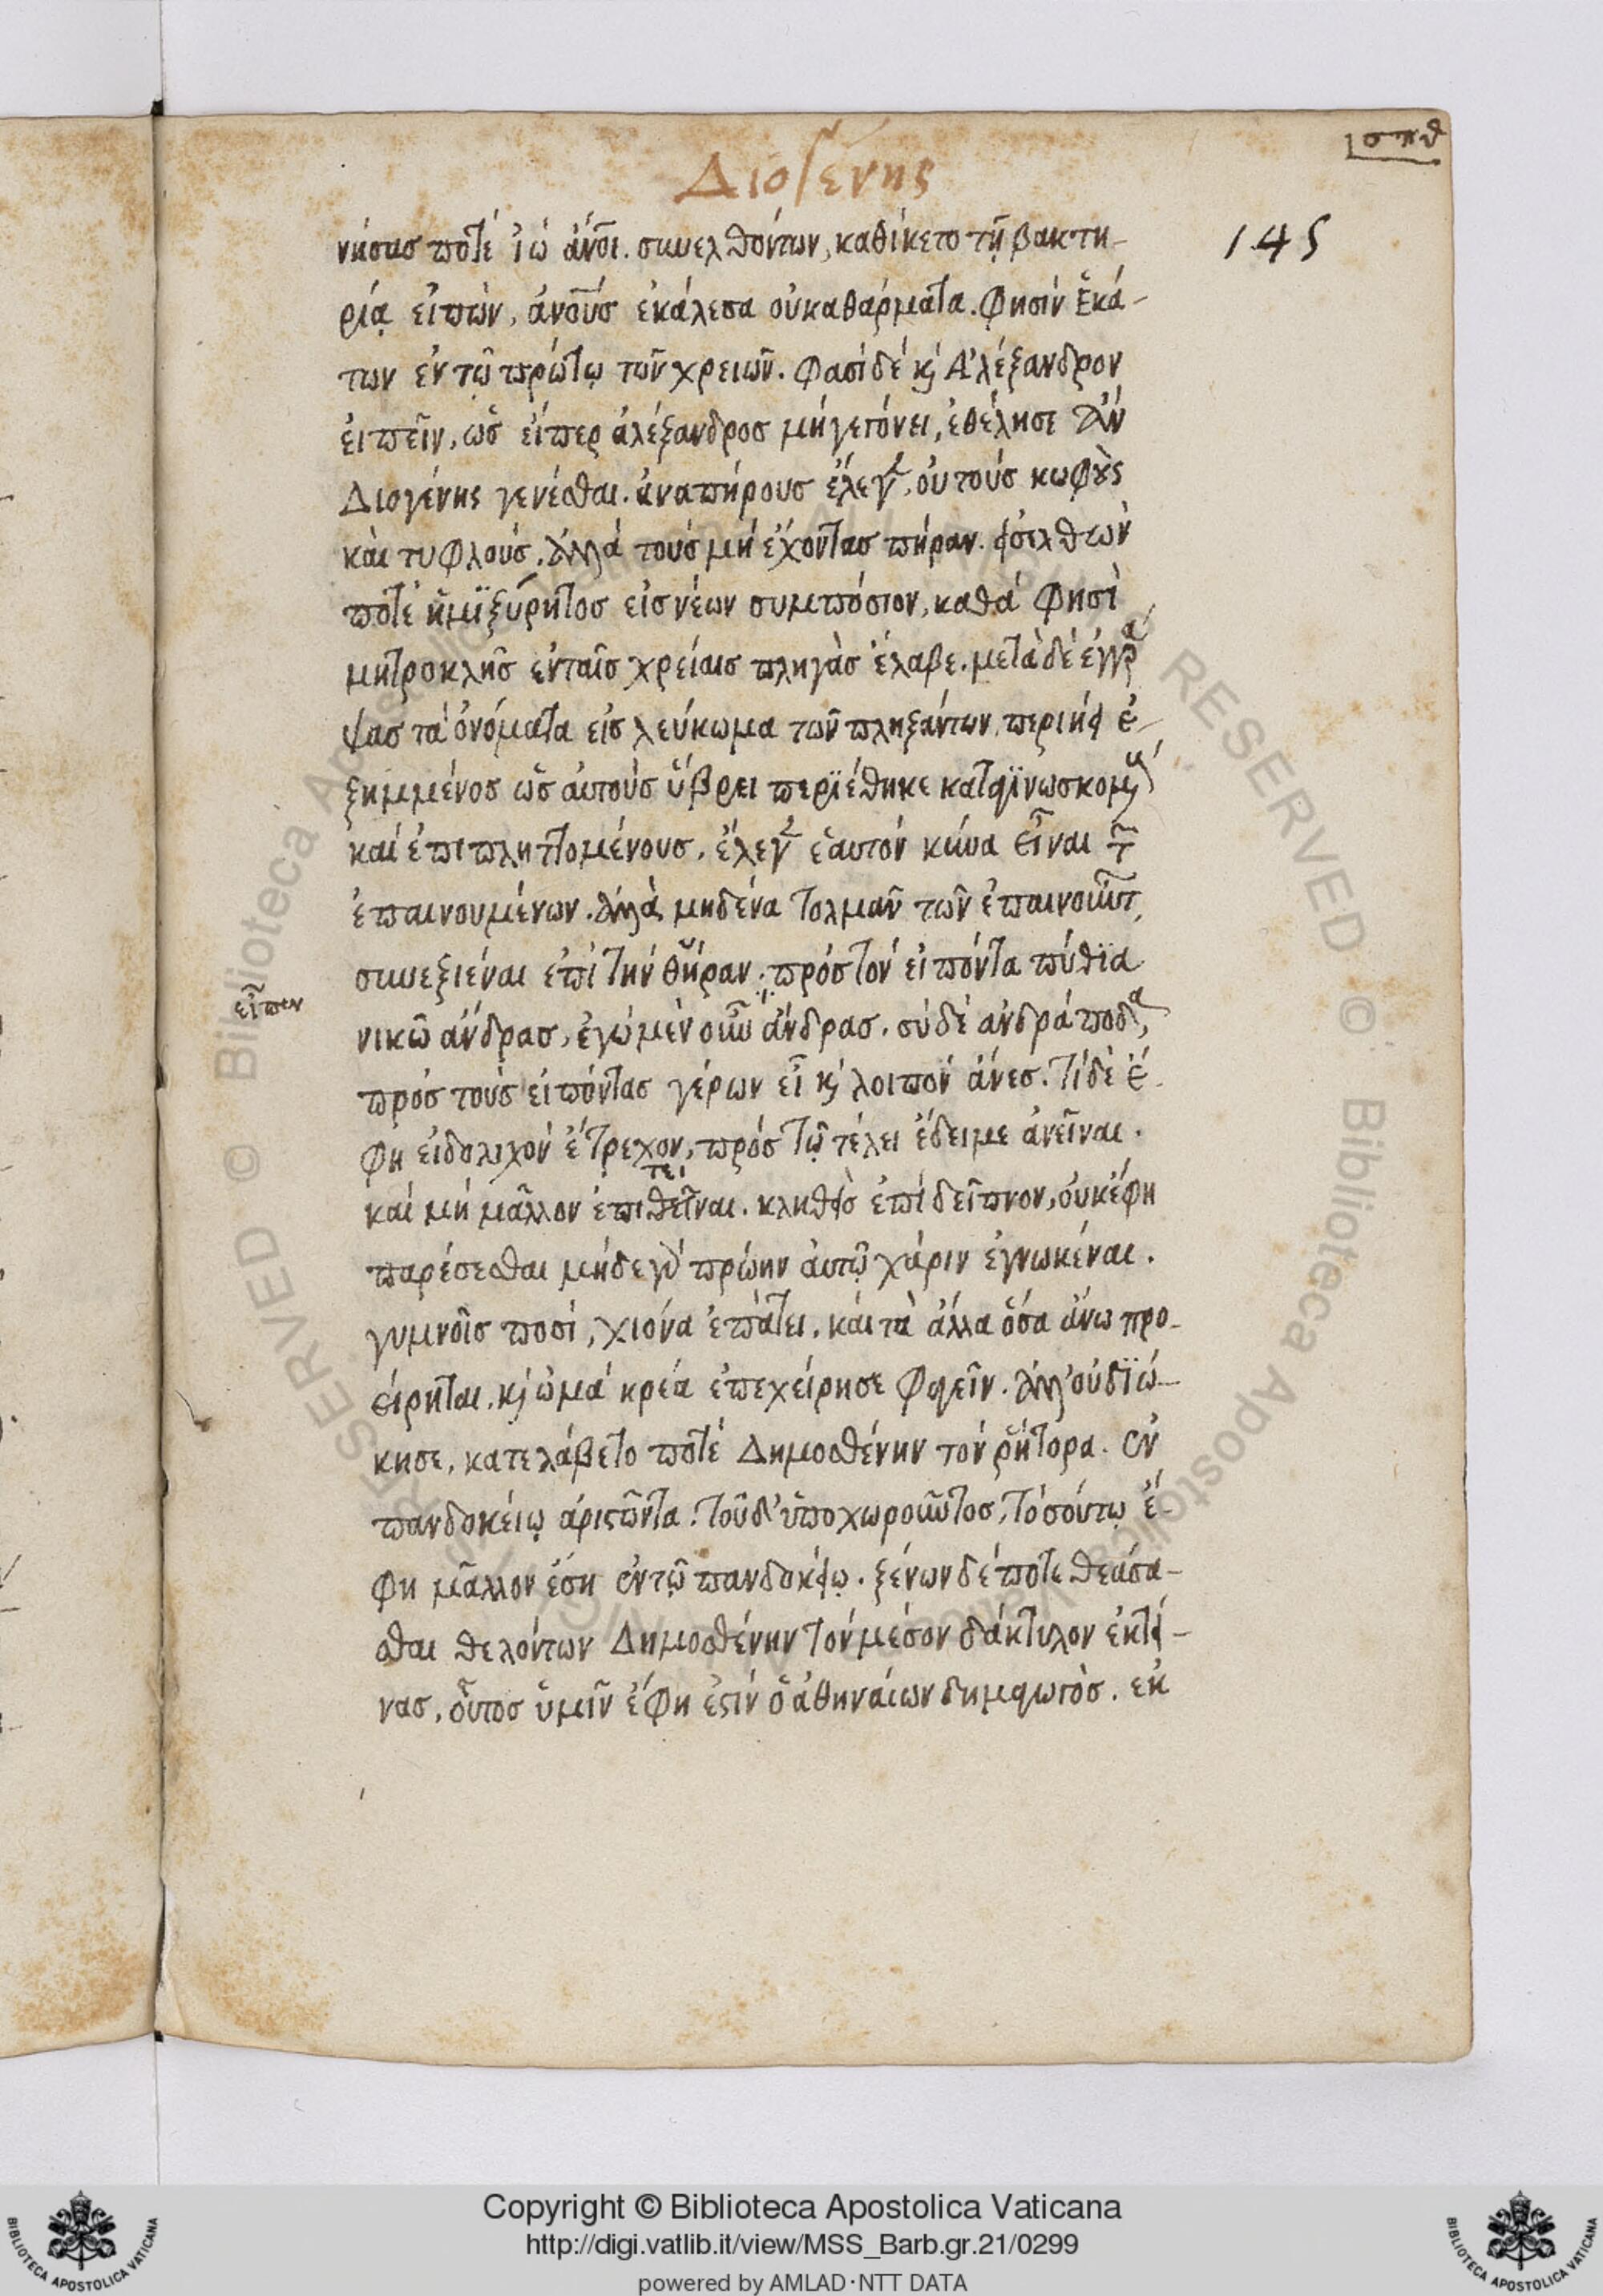 σπθ
Διογένης
145
νήσας ποτὲ ἰὼ ἄνοι. συνελθόντων, καθίκετο τῇ βακτη-
ρίᾳ εἰπὼν, ἀνους ἐκάλεσα οὐ καθάρματα. φησὶν ἑκά-
των ἐν τῷ πρώτῳ τῶν χρειῶν. φασὶ δὲ κ Ἀλέξανδρον
εἰπεῖν, ὡς εἴπερ ἀλέξανδρος μὴ γεγόνει, ἐθέλησε ἂν
Διογένης γενέσθαι. ἀναπήρους ἔλεγ, οὐ τοὺς κωφοὺς
καὶ τυφλούς, ἀλλὰ τοὺς μὴ ἔχοντας πήραν. εἰσελθὼν
ποτὲ ἡμιξύρητος εἰς νέων συμπόσιον, καθά φησὶ
μητροκλῆς ἐν ταῖς χρείαις πληγὰς ἔλαβε. μετὰ δὲ ἐγγρα
ψας τὰ ὀνόματα εἰς λεύκωμα τῶν πληξάντων, περιῄει ἐ-
ξημμένος ὡς αὐτοὺς ὕβρει περιέθηκε καταγινωσκομ
καὶ ἐπιπληττομένους. ἔλεγ ἑαυτὸν κύνα εἶναι τ
ἐπαινουμένων. ἀλλὰ μηδένα τολμᾶν τῶν ἐπαινούντ
συνεξιέναι ἐπὶ τὴν θήραν. πρὸς τὸν εἰπόντα πύθια
εἶπεν
νικῶ ἄνδρας, ἐγὼ μὲν οὖν ἄνδρας. σὺ δὲ ἀνδράποδα,
πρὸς τοὺς εἰπόντας γέρων εἶ κ λοιπὸν ἄνες. τί δὲ ἔ-
φη εἰ δολιχὸν ἔτρεχον, πρὸς τῷ τέλει ἔδει με ἀνεῖναι.
τεῖ
καὶ μὴ μᾶλλον ἐπιθεῖναι. κληθεὶς ἐπὶ δεῖπνον, οὐκ ἔφη
παρέσεσθαι μὴ δε γὰ πρώην αὐτῷ χάριν ἐγνωκέναι.
γυμνοῖς ποσὶ, χιόνα ἐπάτει. καὶ τὰ ἄλλα ὅσα ἄνω προ-
είρηται. κ ὠμὰ κρέα ἐπεχείρησε φαγεῖν. ἀλλ' οὐ διώ-
κησε, κατελάβετο ποτὲ Δημοσθένην τὸν ῥήτορα. ἐν
πανδοκείῳ ἀριστῶντα. τοῦ δ' ὑποχωροῦντος, τοσούτῳ ἔ-
φη μᾶλλον ἔσῃ ἐν τῷ πανδοκείῳ. ξένων δέ ποτε θεάσα-
σθαι θελόντων Δημοσθένην τὸν μέσον δάκτυλον ἐκτεί-
νας, οὗτος ὑμῖν ἔφη ἐστὶν ὁ ἀθηναίων δημαγωγὸς. ἐκ
Copyright © Biblioteca Apostolica Vaticana
http://digi.vatlib.it/view/MSS_Barb.gr.21/0299
powered by AMLAD·NTT DATA